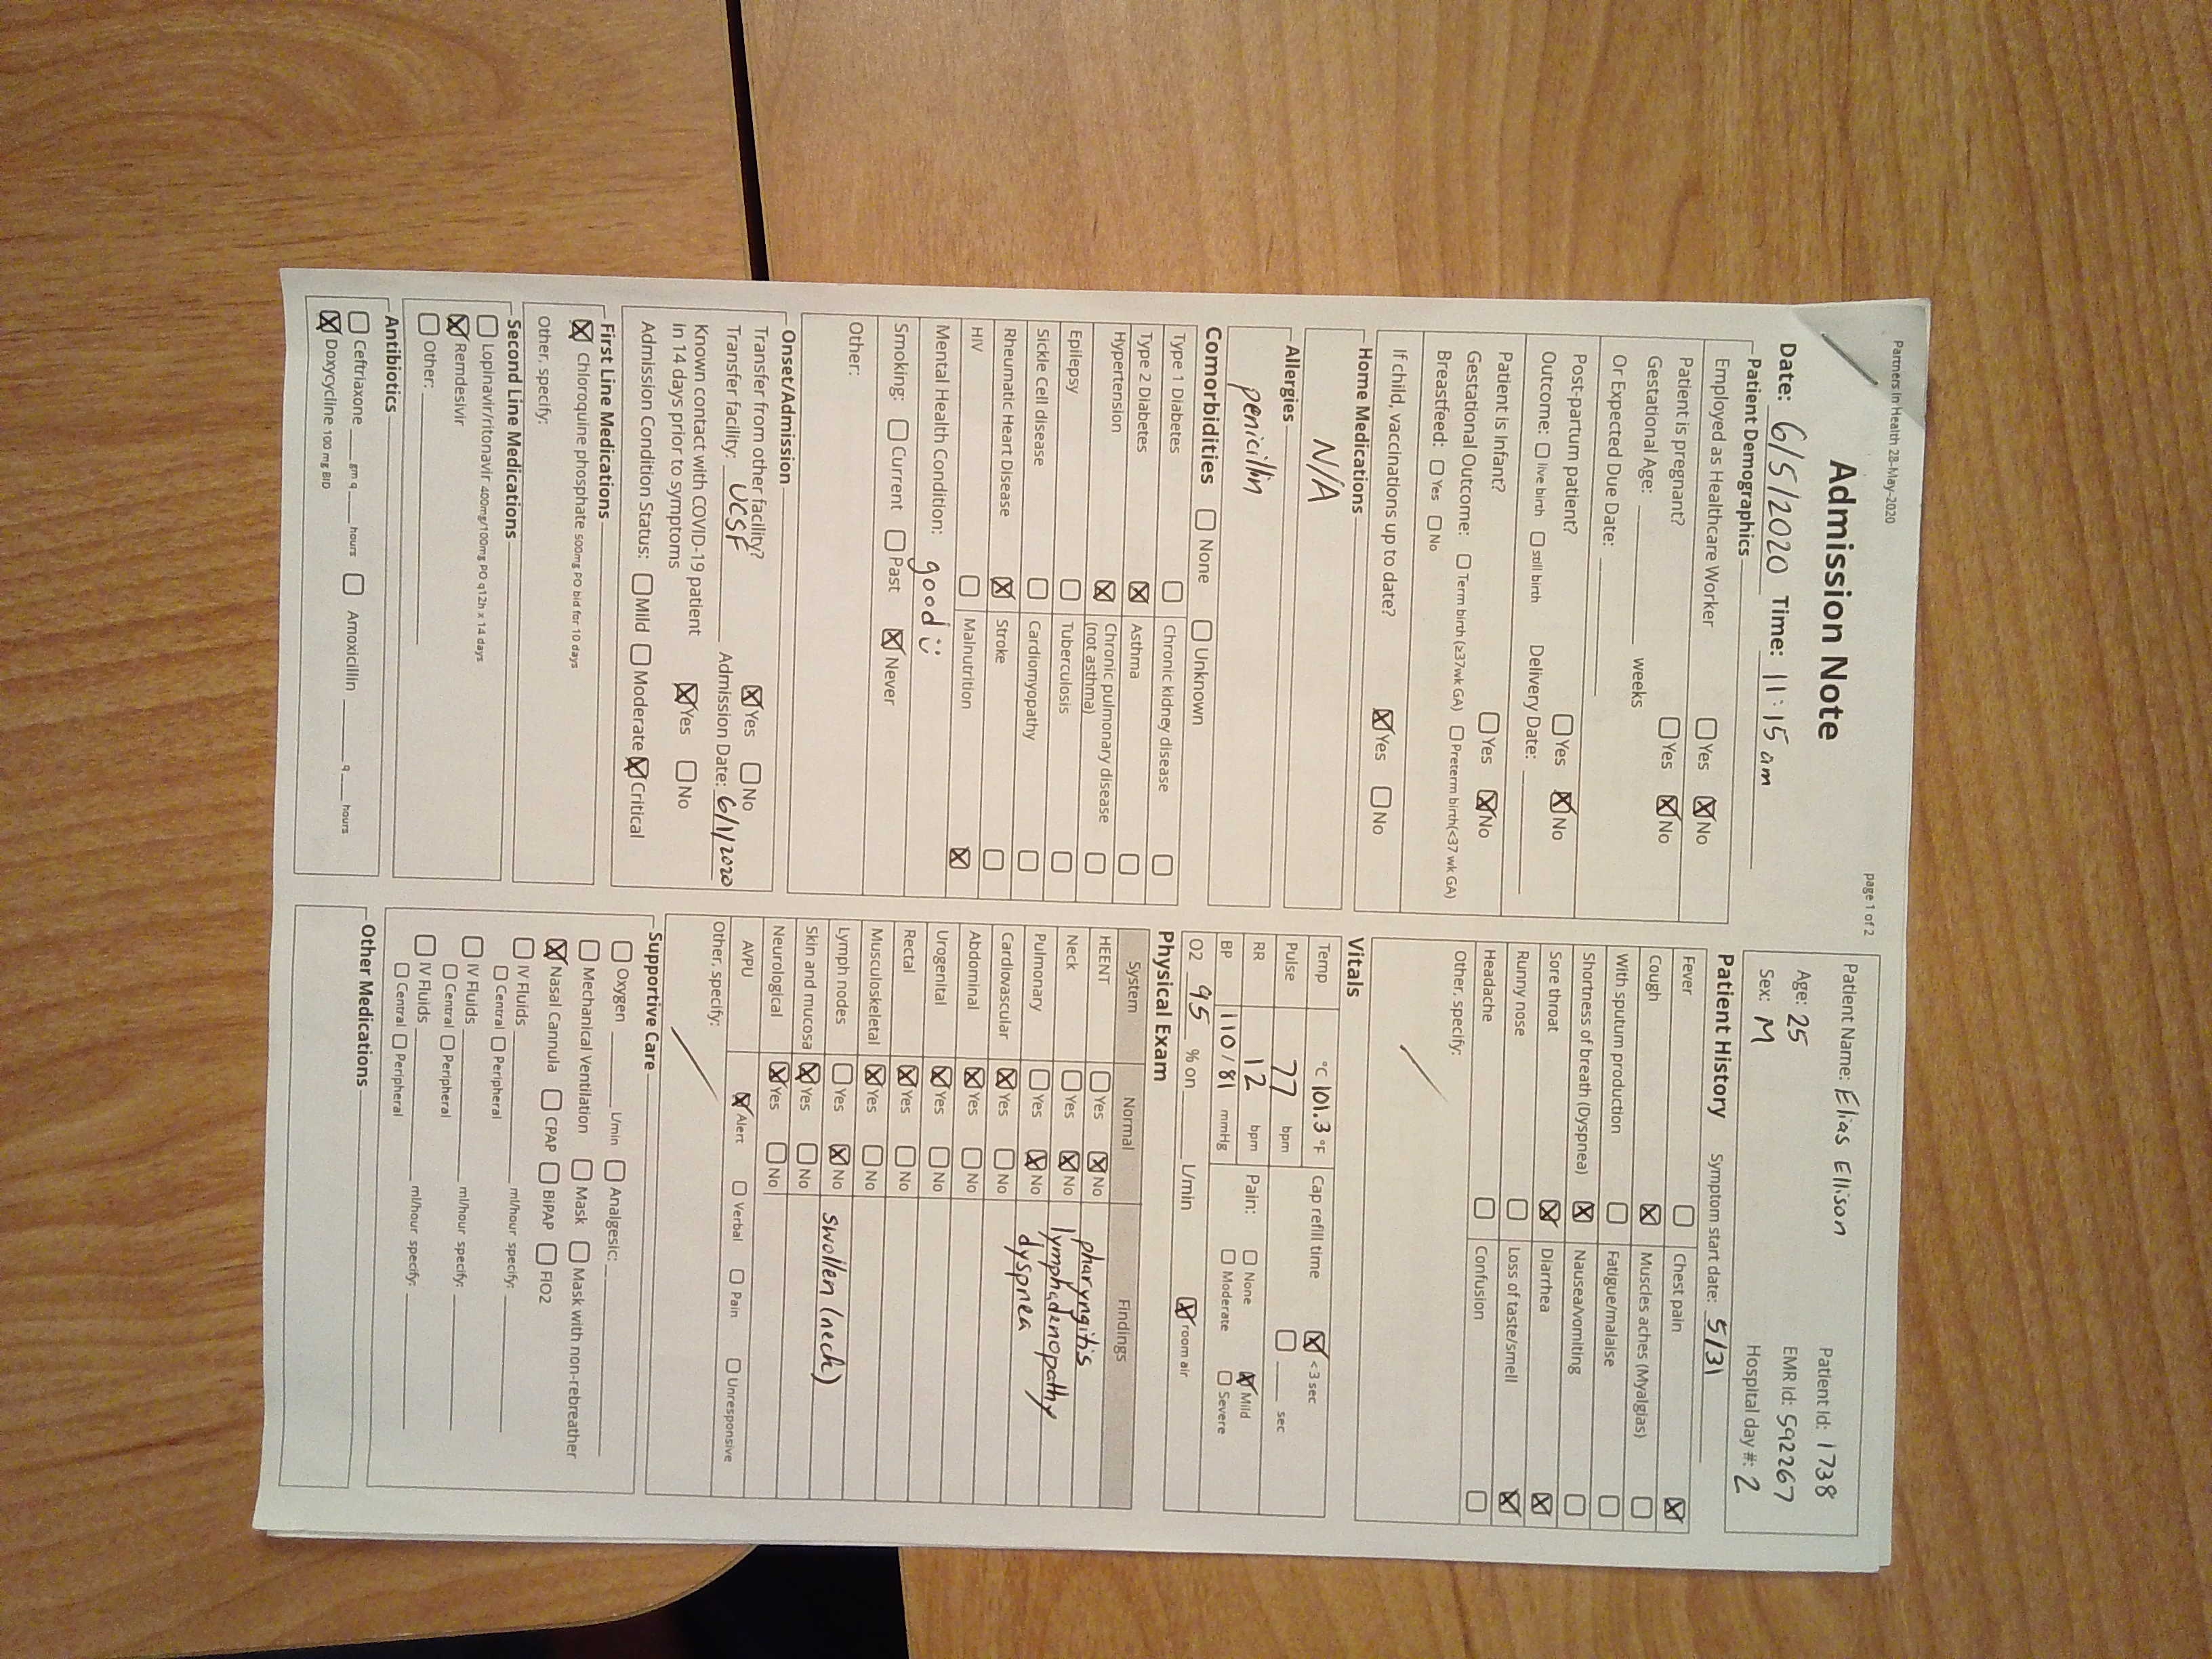 Partners In Health 28-May-2020
page 1 of 2
Admission Note
Date: 6/5/2020 Time: 11:15 am
Patient Demographics
Employed as Healthcare Worker ☐ Yes ☒ No
Patient is pregnant? ☐ Yes ☒ No
Gestational Age: ____ weeks
Or Expected Due Date: ____
Post-partum patient? ☐ Yes ☒ No
Outcome: ☐ live birth ☐ still birth Delivery Date: ____
Patient is Infant? ☐ Yes ☒ No
Gestational Outcome: ☐ Term birth (≥37wk GA) ☐ Preterm birth(<37 wk GA)
Breastfeed: ☐ Yes ☐ No
If child, vaccinations up to date? ☒ Yes ☐ No
Home Medications
N/A
Allergies
penicillin
Comorbidities ☐ None ☐ Unknown
Type 1 Diabetes ☐ Chronic kidney disease ☐
Type 2 Diabetes ☒ Asthma ☐
Hypertension ☒ Chronic pulmonary disease ☐
(not asthma)
Epilepsy ☐ Tuberculosis ☐
Sickle Cell disease ☐ Cardiomyopathy ☐
Rheumatic Heart Disease ☒ Stroke ☐
HIV ☐ Malnutrition ☒
Mental Health Condition: good :)
Smoking: ☐ Current ☐ Past ☒ Never
Other:
Onset/Admission
Transfer from other facility? ☒ Yes ☐ No
Transfer facility: UCSF Admission Date: 6/1/2020
Known contact with COVID-19 patient
in 14 days prior to symptoms ☒ Yes ☐ No
Admission Condition Status: ☐ Mild ☐ Moderate ☒ Critical
First Line Medications
☒ Chloroquine phosphate 500mg PO bid for 10 days
Other, specify:
Second Line Medications
☐ Lopinavir/ritonavir 400mg/100mg PO q12h x 14 days
☒ Remdesivir
☐ Other: ____
Antibiotics
☐ Ceftriaxone ____ gm q ____ hours ☐ Amoxicillin ____ q ____ hours
☒ Doxycycline 100 mg BID
Patient Name: Elias Ellison Patient Id: 1738
Age: 25 EMR Id: 592267
Sex: M Hospital day #: 2
Patient History Symptom start date: 5/31
Fever ☐ Chest pain ☒
Cough ☒ Muscles aches (Myalgias) ☐
With sputum production ☐ Fatigue/malaise ☐
Shortness of breath (Dyspnea) ☒ Nausea/vomiting ☐
Sore throat ☒ Diarrhea ☒
Runny nose ☐ Loss of taste/smell ☒
Headache ☐ Confusion ☐
Other, specify:
Vitals
Temp °C 101.3 °F Cap refill time ☒ <3 sec
Pulse 77 bpm ☐ ____ sec
RR 12 bpm Pain: ☐ None ☒ Mild
BP 110/81 mmHg ☐ Moderate ☐ Severe
O2 95 % on ____ L/min ☒ room air
Physical Exam
System Normal Findings
HEENT ☐ Yes ☒ No pharyngitis
Neck ☐ Yes ☒ No lymphadenopathy
Pulmonary ☐ Yes ☒ No dyspnea
Cardiovascular ☒ Yes ☐ No
Abdominal ☒ Yes ☐ No
Urogenital ☒ Yes ☐ No
Rectal ☒ Yes ☐ No
Musculoskeletal ☒ Yes ☐ No
Lymph nodes ☐ Yes ☒ No swollen (neck)
Skin and mucosa ☒ Yes ☐ No
Neurological ☒ Yes ☐ No
AVPU ☒ Alert ☐ Verbal ☐ Pain ☐ Unresponsive
Other, specify:
Supportive Care
☐ Oxygen ____ L/min ☐ Analgesic: ____
☐ Mechanical Ventilation ☐ Mask ☐ Mask with non-rebreather
☒ Nasal Cannula ☐ CPAP ☐ BiPAP ☐ FIO2
☐ IV Fluids ____ ml/hour specify: ____
☐ Central ☐ Peripheral
☐ IV Fluids ____ ml/hour specify: ____
☐ Central ☐ Peripheral
☐ IV Fluids ____ ml/hour specify: ____
☐ Central ☐ Peripheral
Other Medications